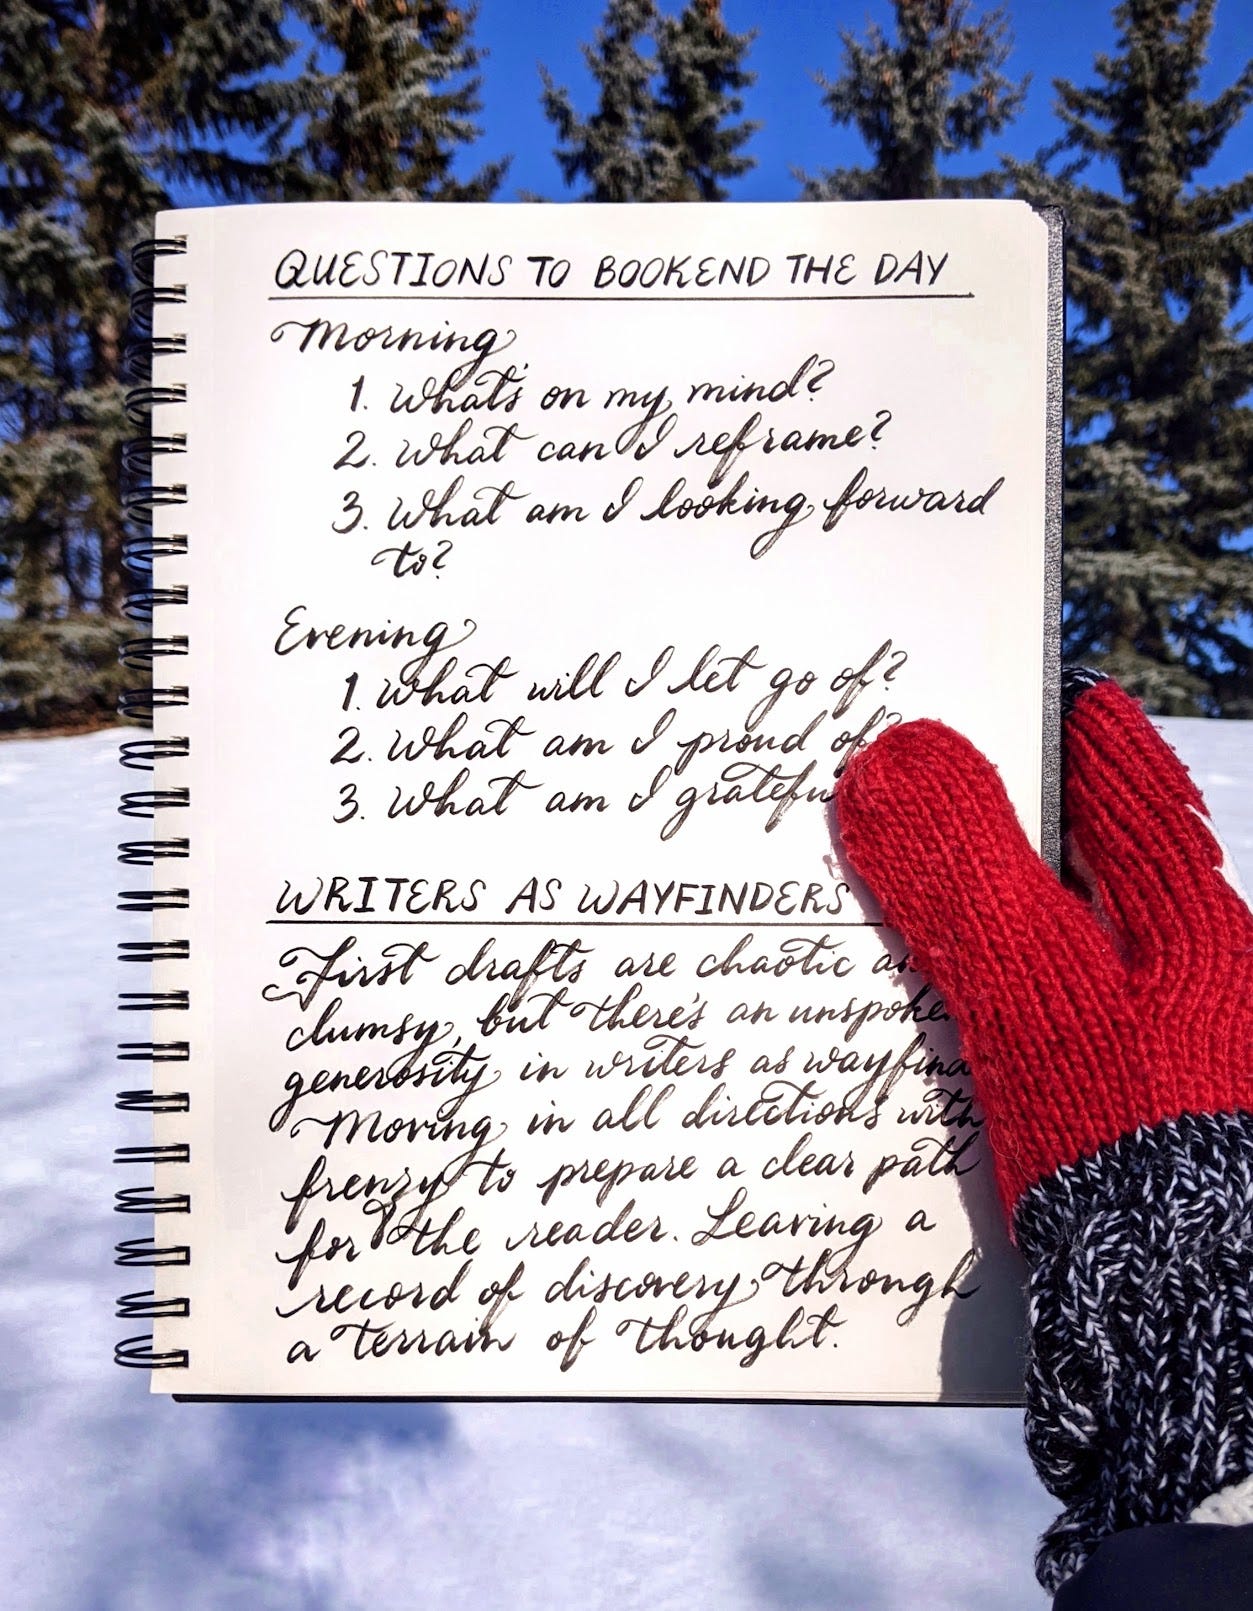 QUESTIONS TO BOOKEND THE DAY
Morning
1. What's on my mind?
2. What can I reframe?
3. What am I looking forward
to?
Evening
1. What will I let go of?
2. What am I proud of?
3. What am I
WRITERS AS WAYFINDERS
First drafts are chaotic
clumsy, but there's an
generosity in writers as
Moving in all directions with
frenzy to prepare a clear path
for the reader. Leaving a
record of discovery through
a terrain of thought.